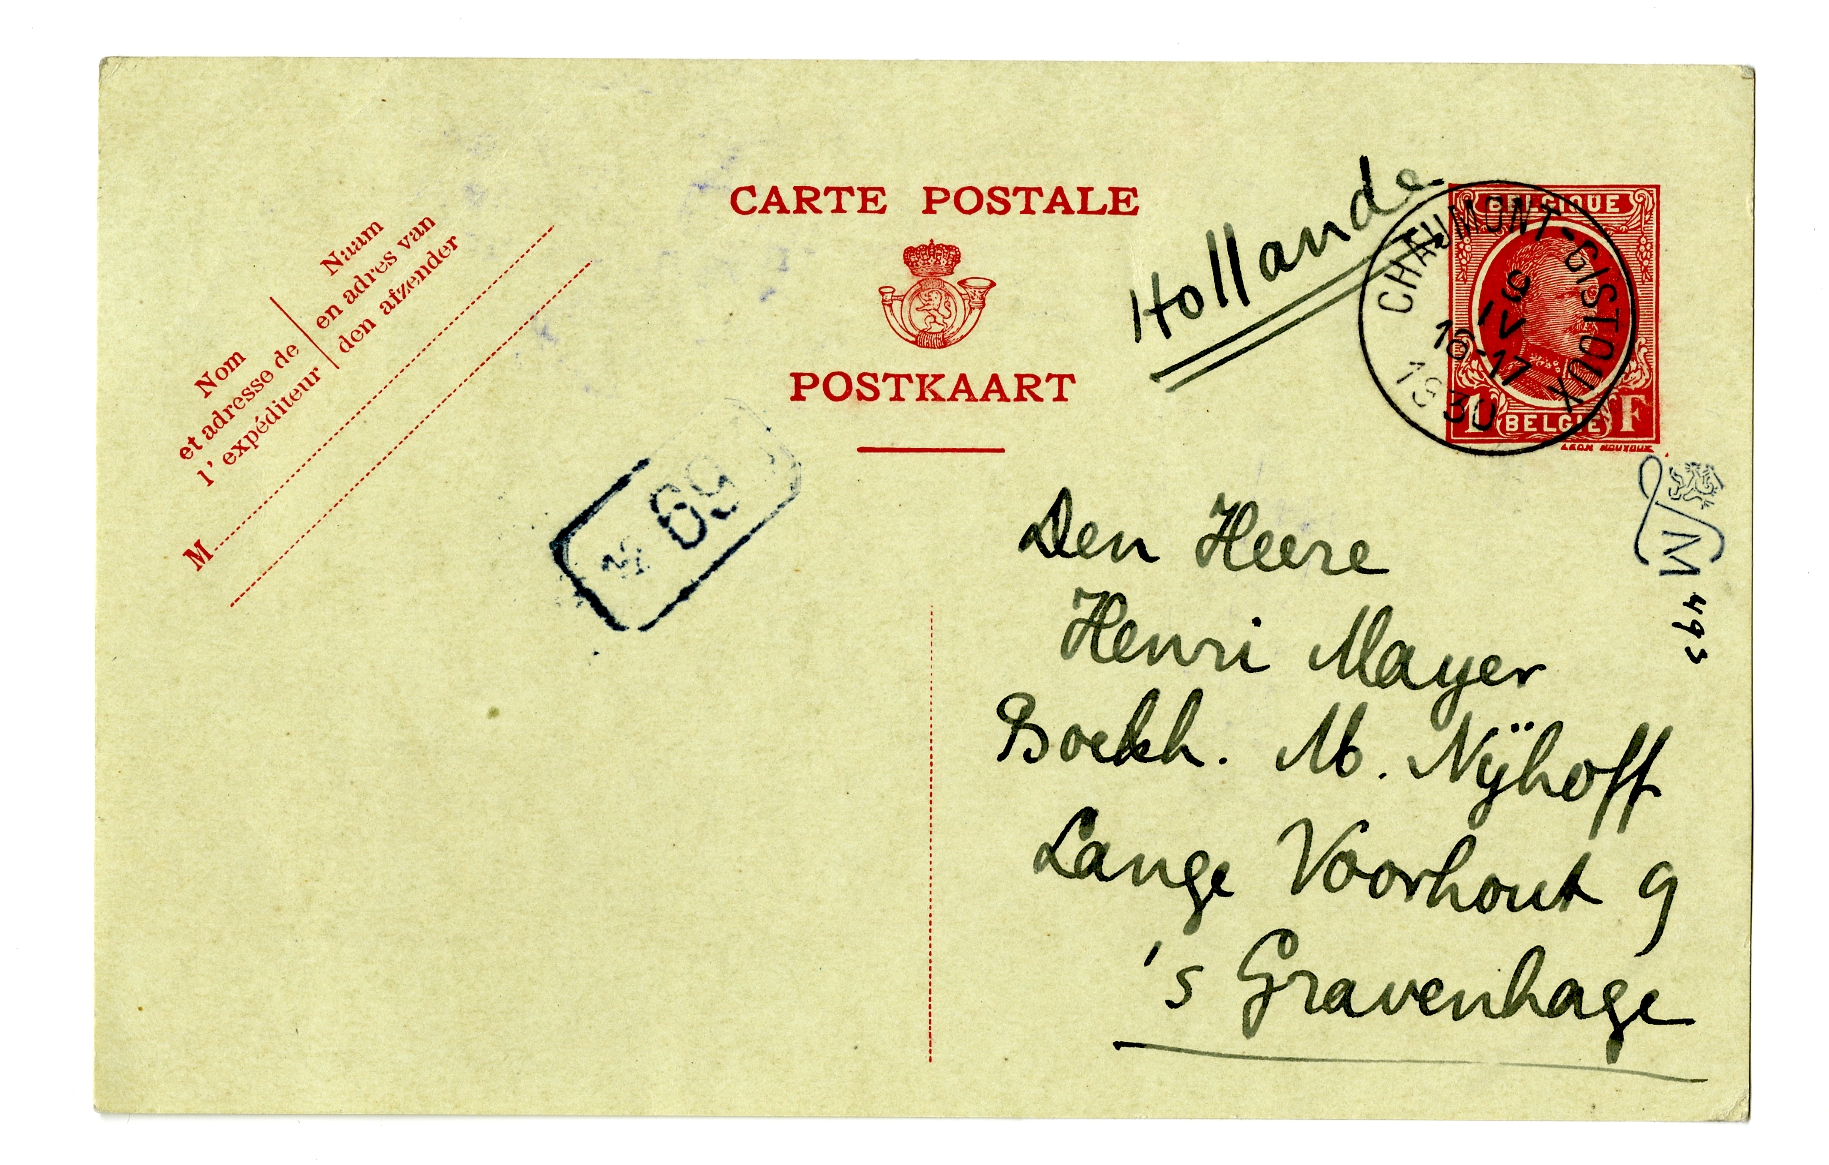 CARTE POSTALE
POSTKAART
Nom
et adresse de
l'expéditeur
Naam
en adres van
den afzender
M
Hollande
BELGIQUE
1 F
BELGIË
CHAUMONT-GISTOUX
IV
16-17
1930
No 69
M 493
Den Heere
Henri Mayer
Boekh. M. Nÿhoff
Lange Voorhout 9
's Gravenhage